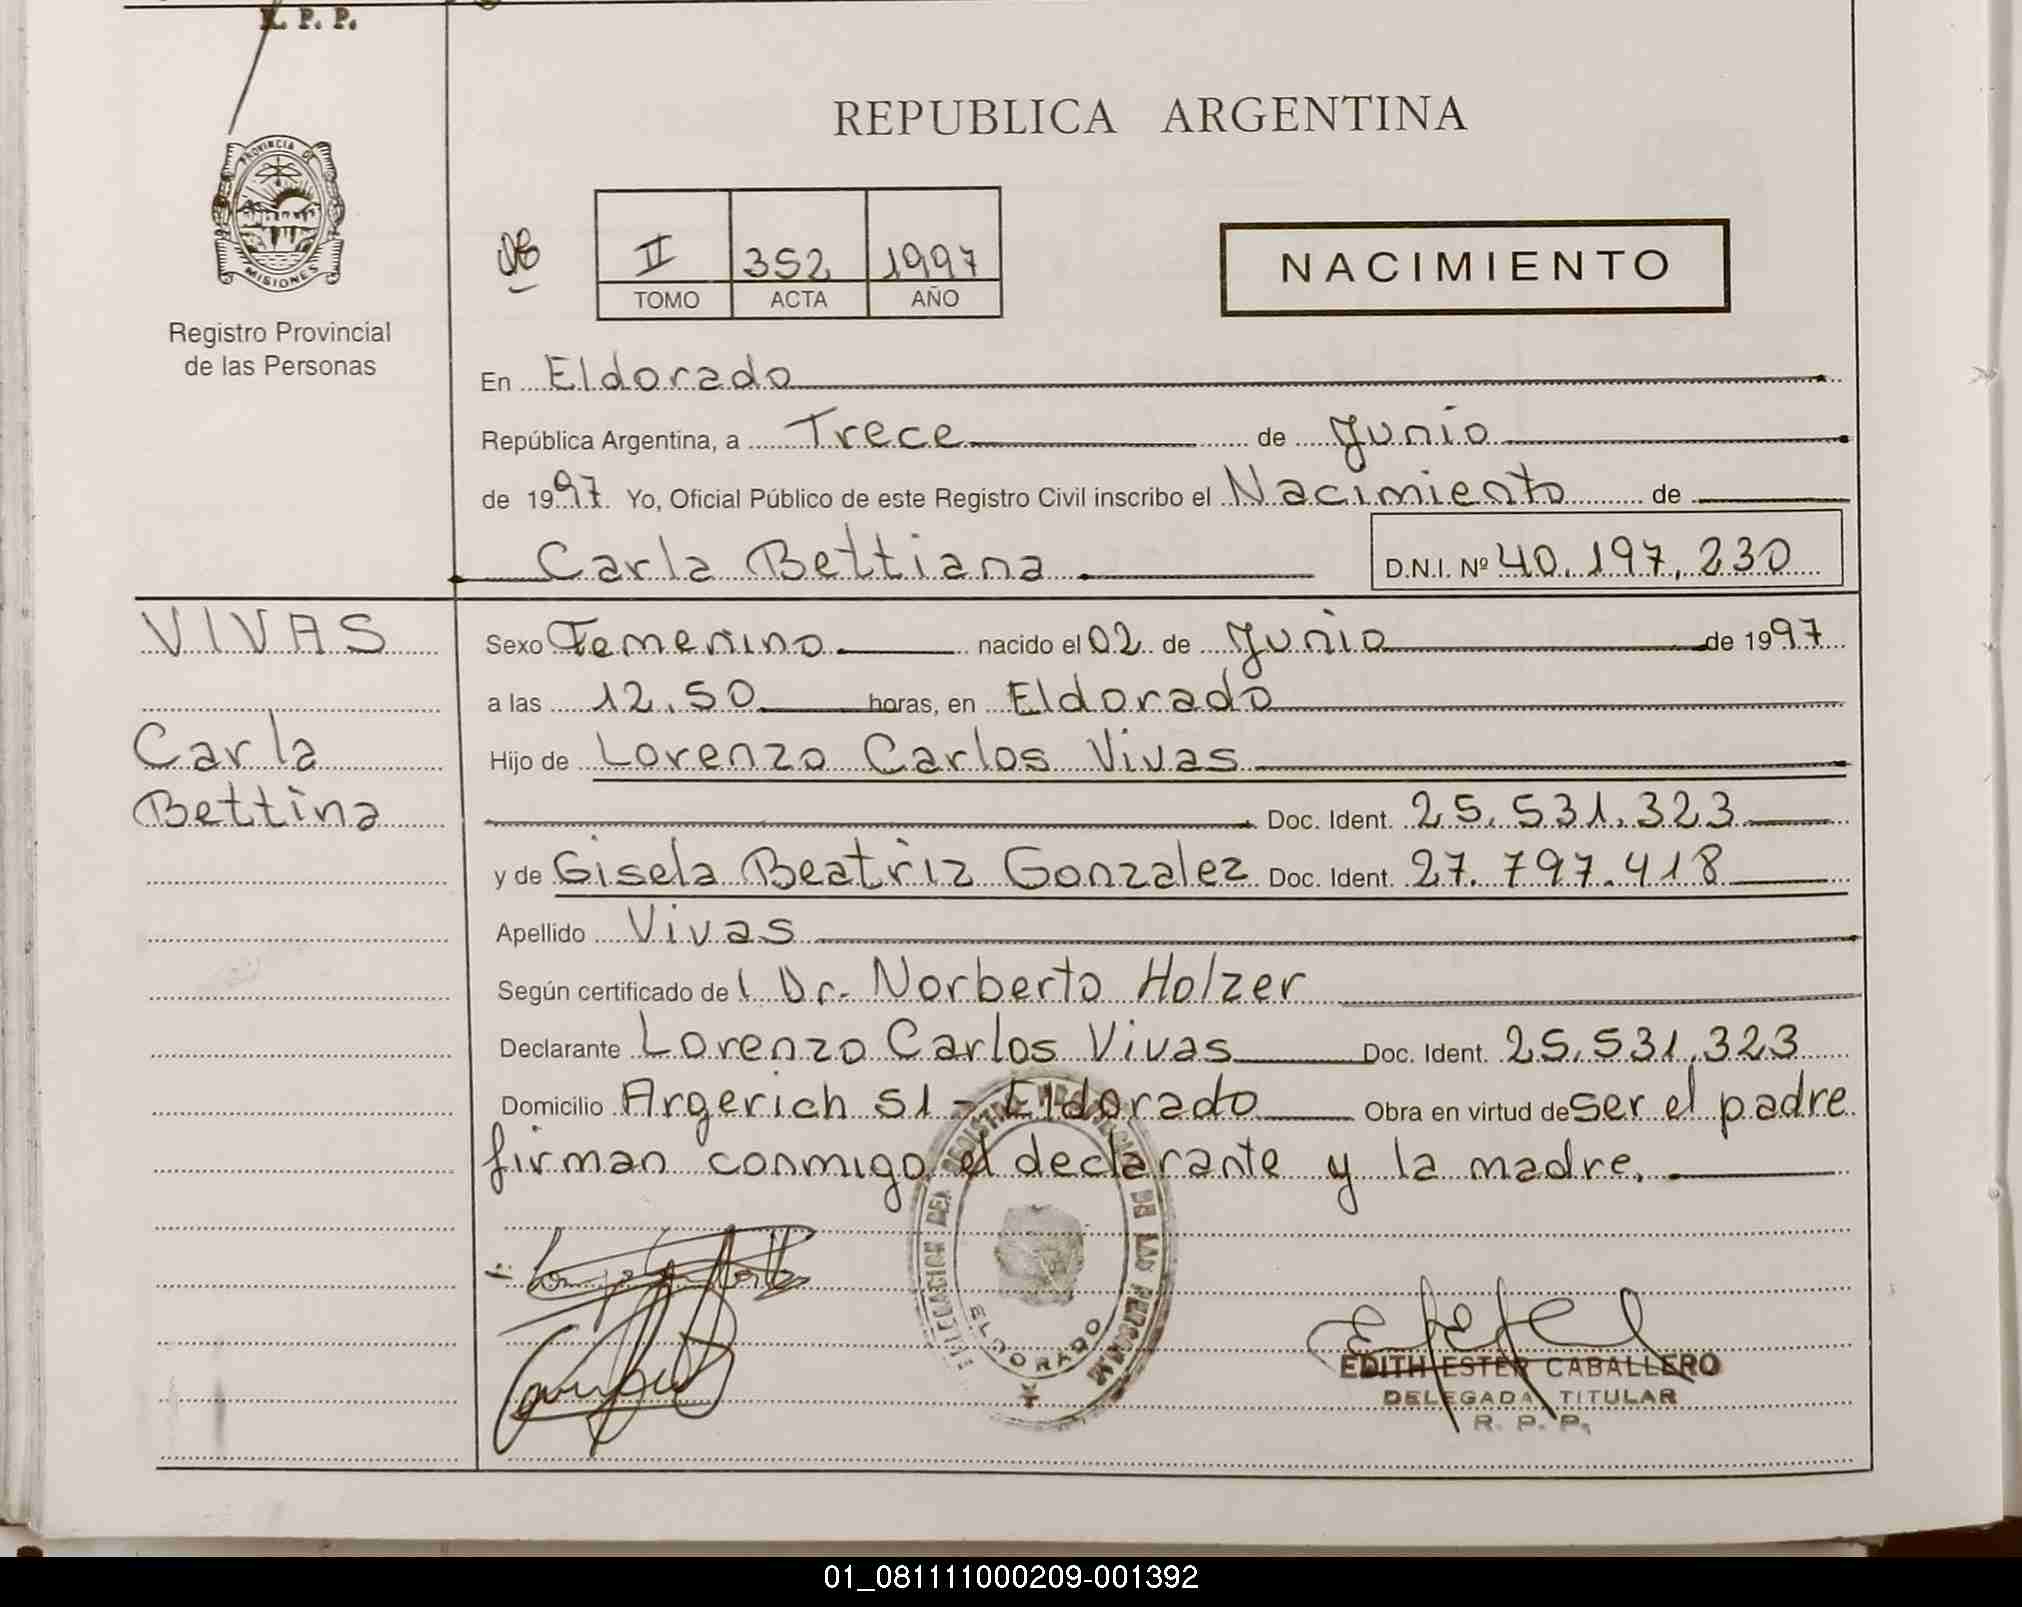 R. P. P.
PROVINCIA DE
MISIONES
Registro Provincial
de las Personas
REPUBLICA ARGENTINA
II 352 1997
TOMO ACTA AÑO
NACIMIENTO
En Eldorado
República Argentina, a Trece de Junio
de 1997. Yo, Oficial Público de este Registro Civil inscribo el Nacimiento de
Carla Bettiana D.N.I. Nº 40.197.230
VIVAS
Carla
Bettina
Sexo Femenino nacido el 02 de Junio de 1997
a las 12.50 horas, en Eldorado
Hijo de Lorenzo Carlos Vivas
Doc. Ident. 25.531.323
y de Gisela Beatriz Gonzalez Doc. Ident. 27.797.418
Apellido Vivas
Según certificado del Dr. Norberto Holzer
Declarante Lorenzo Carlos Vivas Doc. Ident. 25.531.323
Domicilio Argerich 51 - Eldorado Obra en virtud de ser el padre
firman conmigo el declarante y la madre.
DE LAS PERSONAS
ELDORADO
EDITH ESTER CABALLERO
DELEGADA TITULAR
R. P. P.
01_081111000209-001392